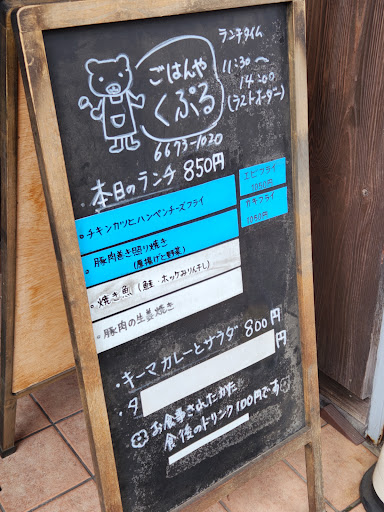 ごはんや
くぷる
6673-1020
ランチタイム
11:30〜
14:00
(ラストオーダー)
本日のランチ 850円
・チキンカツとハンペンチーズフライ
・豚肉巻き照り焼き
(唐揚げと野菜)
・焼き魚 (鮭・ホッケみりん干し)
・豚肉の生姜焼き
エビフライ
1050円
カキフライ
1050円
・キーマカレーとサラダ 800円
・タ
円
お食事されたかた
食後のドリンク100円です